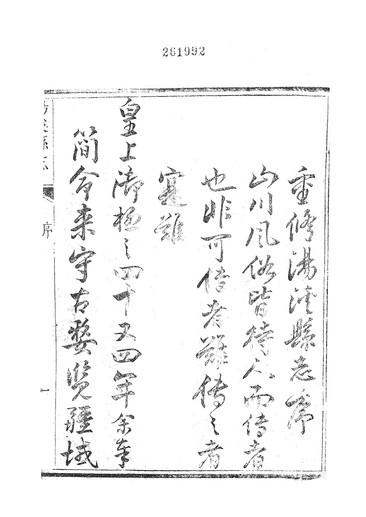 261992
重修湯溪縣志序
山川風俗皆待人而傳者
也非可傳者難傳之者
寔難
皇上御極之四十又四年余奉
簡命来守古婺覽疆域
序
一